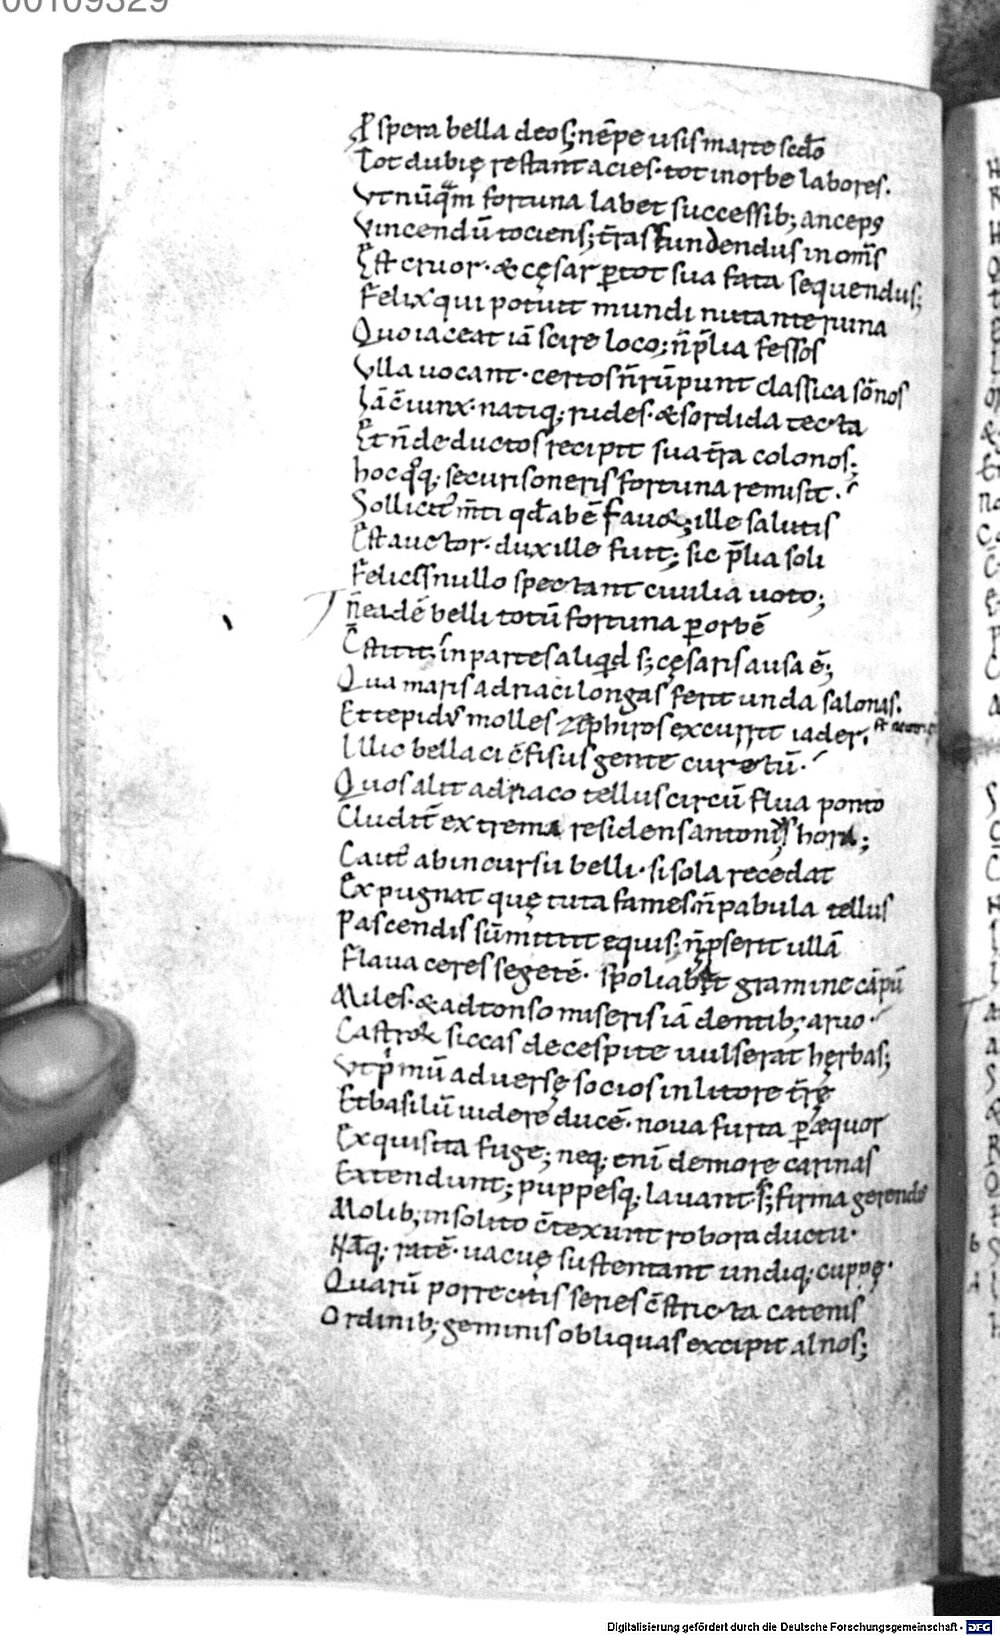 00109329
P̄spera bella deos; nēpe usis marte scdo
Tot dubię restant acies· tot in orbe labores.
Vt nūq̄m fortuna labet successib; anceps
Vincendū tociens; t̄ras fundendus in om̄s
Est cruor· & cęsar ꝑ tot sua fata sequendus;
Felix qui potuit mundi nutante ruina
Quo iaceat iā scire loco; n̄ p̄lia fessos
Vlla uocant· certos n̄ rūpunt classica sōnos
Iā c̄iunx· natiq; rudes· & sordida tecta
Et n̄ deductos recipit sua t̄ra colonos;
hoc qoq; securis oneris fortuna remisit·
Sollicit m̄ti qd abē fauor; ille salutis
Est auctor· dux ille fuit; sic p̄lia soli
Felices nullo spectant ciuilia uoto;
n̄ eadē belli totū fortuna ꝑ orbē
C̄stitit; in partes aliqid s; cęsaris ausa ē;
Qua maris adriaci longas ferit unda salonas.
Et tepidū molles zephiros excurrit iader.
Illic bellaci c̄fisus gente curetū·
Quos alit adriaco tellus circū flua ponto
Cludit̄ extrema residens antoni hora;
Caut ab incursu belli· si sola recedat
Expugnat quę tuta fames; n̄ pabula tellus
Pascendis sūmittit equis; n̄ pserit ullā
Flaua ceres segetē· spoliabat gramine cāpū
Miles· & adtonso miseris iā dentib; aruo·
Castroꝝ siccas de cespite uulserat hęrbas;
Vt p̄mū aduersę socios in litore t̄rę
Et basilū uidere ducē· noua furta ꝑ æquor
Exquisita fuge; neq; enī de more carinas
Extendunt; puppesq; lauant· s; firma gerendis
Molib; insolito c̄texunt robora ductu·
Nāq; ratē· uacuę sustentant undiq; cuppę·
Quarū porrectis series c̄stricta catenis
Ordinib; geminis obliquas excipit alnos;
Digitalisierung gefördert durch die Deutsche Forschungsgemeinschaft - DFG